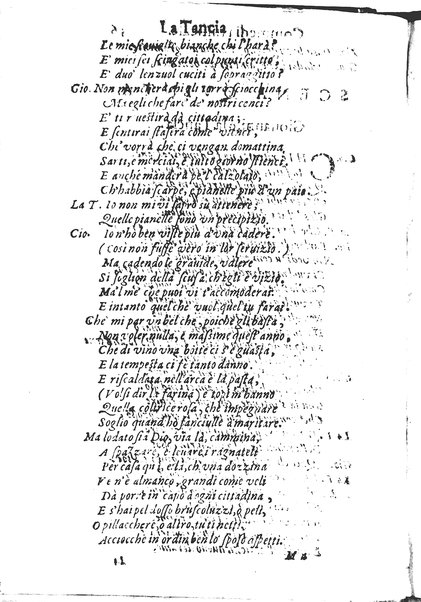 La Tancia
Le mie stoviglie bianche chi l'harà?
E' miei sei sciugatoi col punto scritto,
E' duo' lenzuol cuciti a sopraggitto?
Cio. Non mancherà chi gli torrà sciocchina,
Ma egli che far de' nostri cenci?
E' ti vestirà da cittadina;
E sentirai stasera come vienci,
Che vorrà che ci vengan domattina
Sarti, e merciai, e tutto giorno stienci,
E anche manderà pe'l calzolaio,
Ch'habbia scarpe, e pianelle piu d'un paio.
La T. Io non mi vi saprò su attenere;
Quelle pianelle sono un precipizio.
Cio. Io n'ho ben viste piu d'una cadere.
(Cosi non fusse vero in lor seruizio.)
Ma cadendo le grauide, valere
Si soglion della scusa ch'egli è vizio,
Ma l me' che puoi vi t'accomoderai
E intanto quel che vuol quel tu farai.
Che mi par un bel che, poich'egli basta,
Non voler nulla, e massime quest'anno,
Che di vino una botte ci s'è guasta,
E la tempesta ci fe tanto danno.
E riscaldata nell'arca è la pasta,
(Volsi dir la farina) e topi m'hanno
Quella coltrice rosa, che impegnare
Soglio quand'ho fanciulle a maritare.
Ma lodato sia Dio, via là, cammina,
A spazzare, e leuare i ragnateli
Per casa quì, e là, ch'una dozzina
Ve n'è almanco, grandi come veli
Da porre in capo a ogni cittadina,
E s'hai pel dosso bruscoluzzi, o peli,
O pillacchere, o altro, tuti netti,
Acciocche in ordin ben lo sposo aspetti.